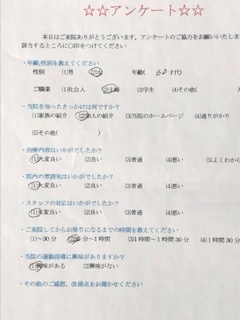 ☆☆アンケート☆☆
本日はご来院ありがとうございます。アンケートのご協力をお願いいたしま
該当するところに○印をつけてください
・年齢,性別を教えてください
性別 (1)男 (2)女 年齢( 60 才代)
ご職業 (1)社会人 (2)主婦 (3)学生 (4)その他(
・当院を知ったきっかけは何ですか?
(1)家族の紹介 (2)知人の紹介 (3)当院のホームページ (4)通りがかり
(5)その他( )
・治療内容はいかがでしたか?
(1)大変良い (2)良い (3)普通 (4)悪い (5)よくわから
・院内の雰囲気はいかがでしたか?
(1)大変良い (2)良い (3)普通 (4)悪い
・スタッフの対応はいかがでしたか?
(1)大変良い (2)良い (3)普通 (4)悪い
・ご来院してからお帰りになるまでの時間を教えてください
(1)~30分 (2)30分~1時間 (3)1時間~1時間30分 (4)1時間30
・当院の運動指導に興味がありますか?
(1)興味がある (2)興味がない
・その他のご感想、改善点をお聞かせください